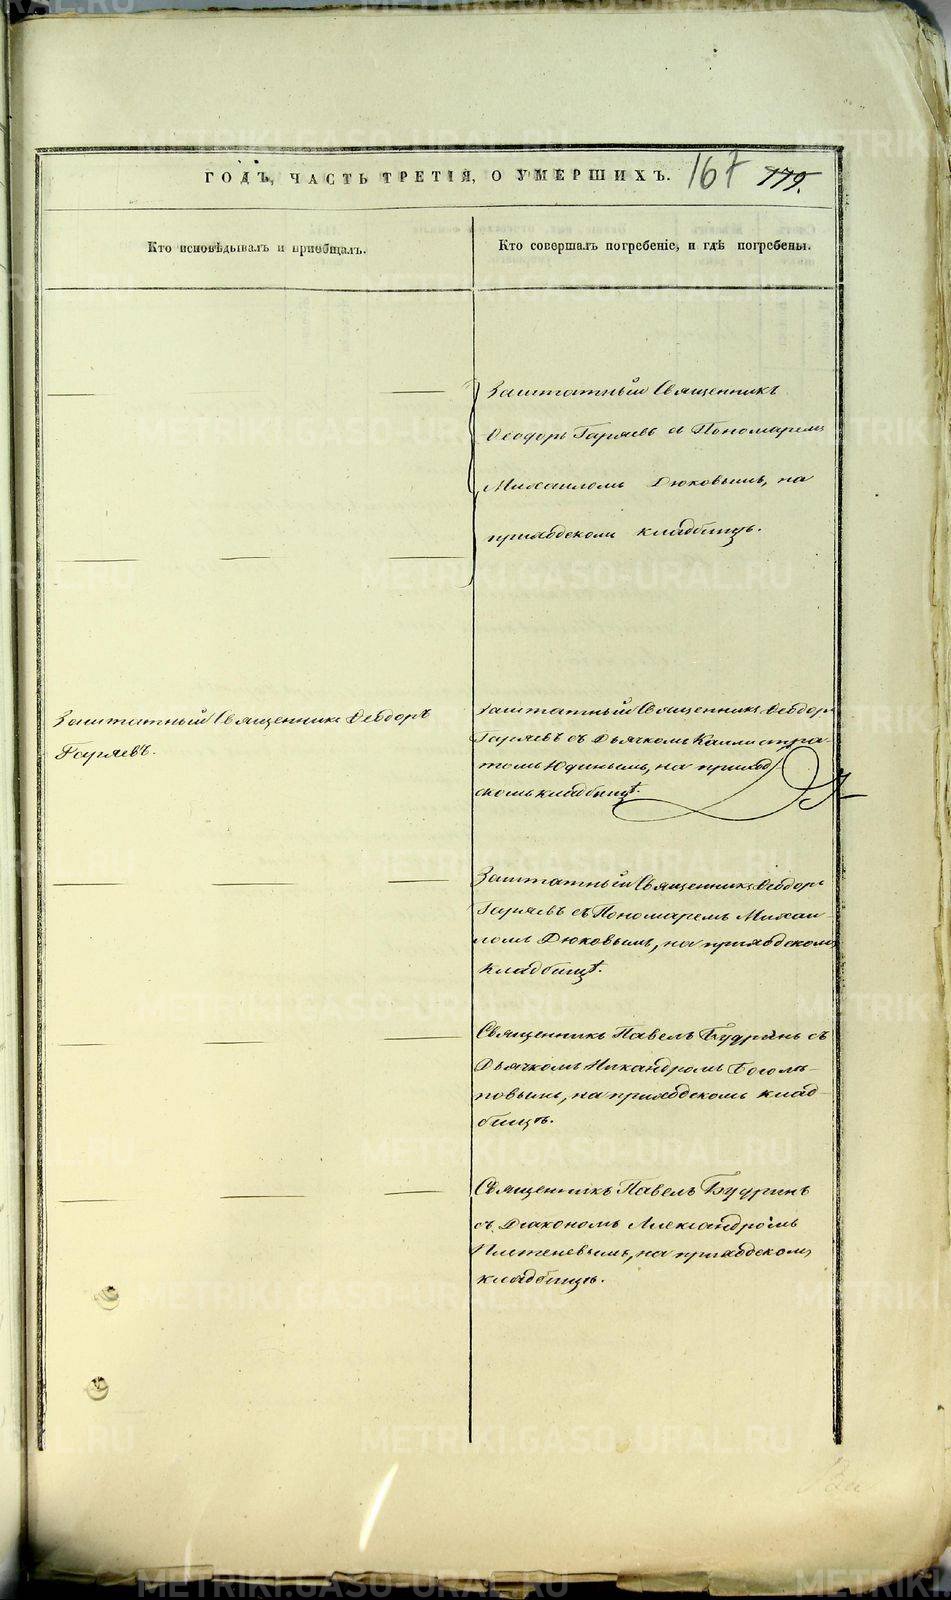 ГОДЪ, ЧАСТЬ ТРЕТІЯ, О УМЕРШИХЪ. 167 179.
Кто исповѣдывалъ и пріобщалъ.
Кто совершалъ погребеніе, и гдѣ погребены.
Заштатный Священникъ
Ѳеодоръ Гаряевъ съ Пономаремъ
Михаиломъ Дюковымъ, на
приходскомъ кладбищѣ.
Заштатный Священникъ Ѳеодоръ
Гаряевъ.
Заштатный Священникъ Ѳеодоръ
Гаряевъ съ Дьячкомъ Каллистра-
томъ Юдинымъ, на приход-
скомъ кладбищѣ.
Заштатный Священникъ Ѳеодоръ
Гаряевъ съ Пономаремъ Михаи-
ломъ Дюковымъ, на приходскомъ
кладбищѣ.
Священникъ Павелъ Будринъ съ
Дьячкомъ Никандромъ Богомъ-
повымъ, на приходскомъ клад-
бищѣ.
Священникъ Павелъ Будринъ
съ Діакономъ Александромъ
Плетеневымъ, на приходскомъ
кладбищѣ.
METRIKI.GASO-URAL.RU